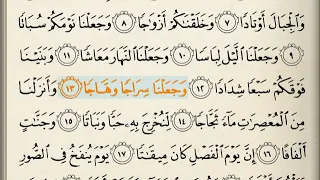 وَٱلْجِبَالَ أَوْتَادًا ٧ وَخَلَقْنَٰكُمْ أَزْوَٰجًا ٨ وَجَعَلْنَا نَوْمَكُمْ سُبَاتًا
٩ وَجَعَلْنَا ٱلَّيْلَ لِبَاسًا ١٠ وَجَعَلْنَا ٱلنَّهَارَ مَعَاشًا ١١ وَبَنَيْنَا
فَوْقَكُمْ سَبْعًا شِدَادًا ١٢ وَجَعَلْنَا سِرَاجًا وَهَّاجًا ١٣ وَأَنزَلْنَا
مِنَ ٱلْمُعْصِرَٰتِ مَآءً ثَجَّاجًا ١٤ لِّنُخْرِجَ بِهِۦ حَبًّا وَنَبَاتًا ١٥ وَجَنَّٰتٍ
أَلْفَافًا ١٦ إِنَّ يَوْمَ ٱلْفَصْلِ كَانَ مِيقَٰتًا ١٧ يَوْمَ يُنفَخُ فِى ٱلصُّورِ